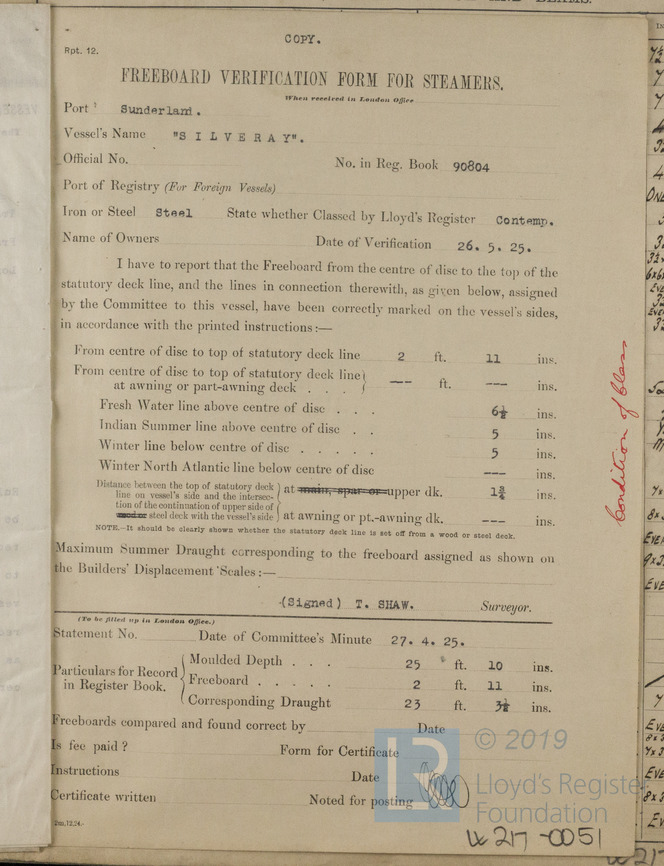 COPY.
Rpt. 12.
FREEBOARD VERIFICATION FORM FOR STEAMERS.
When received in London Office
Port Sunderland.
Vessel's Name "SILVERAY".
Official No. No. in Reg. Book 90804
Port of Registry (For Foreign Vessels)
Iron or Steel Steel State whether Classed by Lloyd's Register Contemp.
Name of Owners Date of Verification 26. 5. 25.
I have to report that the Freeboard from the centre of disc to the top of the
statutory deck line, and the lines in connection therewith, as given below, assigned
by the Committee to this vessel, have been correctly marked on the vessel's sides,
in accordance with the printed instructions:—
From centre of disc to top of statutory deck line 2 ft. 11 ins.
From centre of disc to top of statutory deck line
at awning or part-awning deck . . . --- ft. --- ins.
Fresh Water line above centre of disc . . . 6½ ins.
Indian Summer line above centre of disc . . 5 ins.
Winter line below centre of disc . . . . . 5 ins.
Winter North Atlantic line below centre of disc --- ins.
Distance between the top of statutory deck
line on vessel's side and the intersec-
tion of the continuation of upper side of
wood or steel deck with the vessel's side
at main, spar or upper dk. 1¾ ins.
at awning or pt.-awning dk. --- ins.
NOTE.—It should be clearly shown whether the statutory deck line is set off from a wood or steel deck.
Maximum Summer Draught corresponding to the freeboard assigned as shown on
the Builders' Displacement Scales:—
(Signed) T. SHAW. Surveyor.
(To be filled up in London Office.)
Statement No. Date of Committee's Minute 27. 4. 25.
Particulars for Record
in Register Book.
Moulded Depth . . . 25 ft. 10 ins.
Freeboard . . . . . 2 ft. 11 ins.
Corresponding Draught 23 ft. 3½ ins.
Freeboards compared and found correct by Date
Is fee paid ? Form for Certificate
Instructions Date
Certificate written Noted for posting
2m,12,24.
Condition of Class
© 2019
Lloyd's Register
Foundation
LR
W217-0051